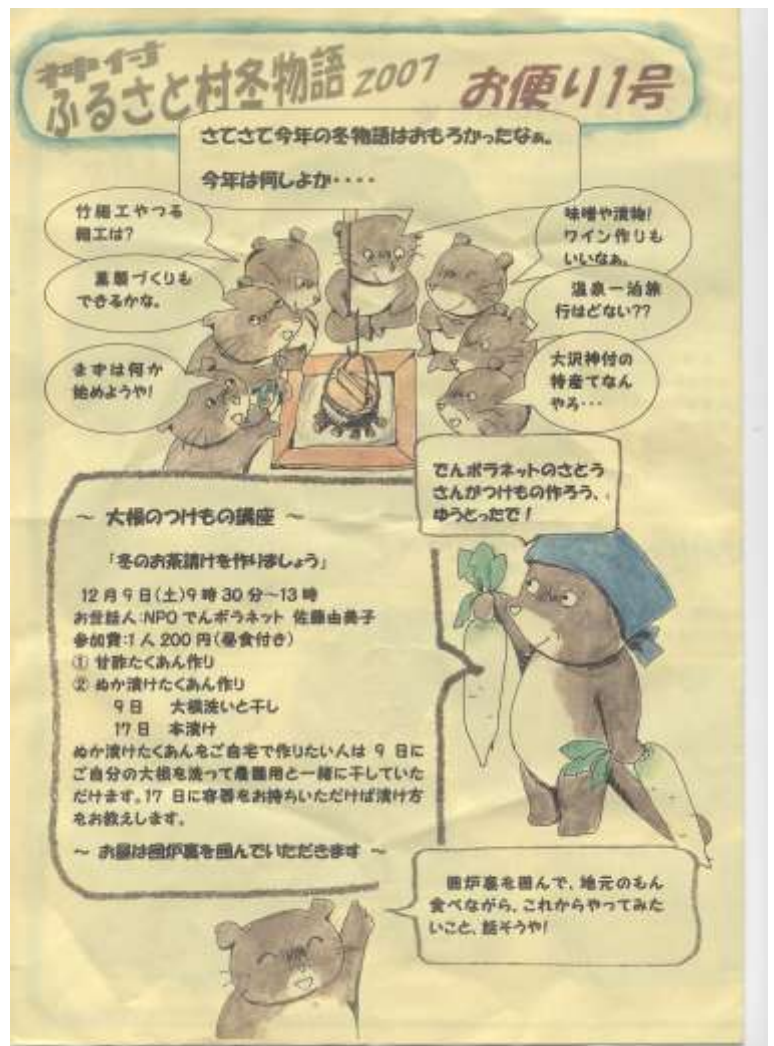 神付
ふるさと村冬物語 2007
お便り1号
さてさて今年の冬物語はおもろかったなぁ。
今年は何しよか・・・・
竹細工やつる
細工は?
味噌や漬物!
ワイン作りも
いいなぁ。
づくりも
できるかな。
温泉一泊旅
行はどない??
まずは何か
始めようや!
大沢神付の
特産てなん
やろ・・・
でんボラネットのさとう
さんがつけもの作ろう、
ゆうとったで!
～ 大根のつけもの講座 ～
「冬のお茶請けを作りましょう」
12月9日(土)9時30分～13時
お世話人:NPOでんボラネット 佐藤由美子
参加費:1人200円(昼食付き)
① 甘酢たくあん作り
② ぬか漬けたくあん作り
9日 大根洗いと干し
17日 本漬け
ぬか漬けたくあんをご自宅で作りたい人は 9 日に
ご自分の大根を洗って農園用と一緒に干していた
だけます。17 日に容器をお持ちいただけば漬け方
をお教えします。
～ お昼は囲炉裏を囲んでいただきます ～
囲炉裏を囲んで、地元のもん
食べながら、これからやってみた
いこと、話そうや!